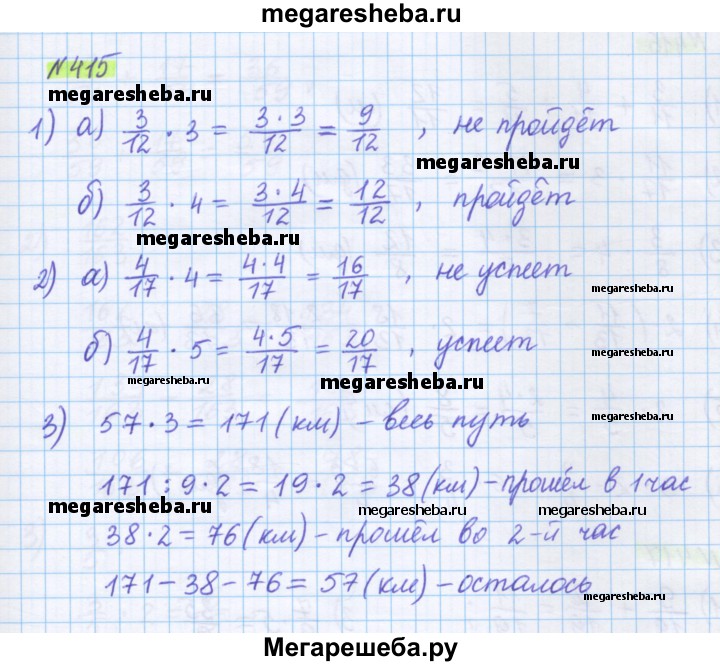 megaresheba.ru
№415
megaresheba.ru
1) а) 3/12 · 3 = 3·3/12 = 9/12 , не пройдёт
megaresheba.ru
б) 3/12 · 4 = 3·4/12 = 12/12 , пройдёт
megaresheba.ru
2) а) 4/17 · 4 = 4·4/17 = 16/17 , не успеет
megaresheba.ru
б) 4/17 · 5 = 4·5/17 = 20/17 , успеет
megaresheba.ru megaresheba.ru
3) 57·3 = 171 (км) – весь путь
megaresheba.ru
171 : 9 · 2 = 19 · 2 = 38 (км) – прошёл в 1 час
megaresheba.ru megaresheba.ru megaresheba.ru
38·2 = 76 (км) – прошёл во 2-й час
171 – 38 – 76 = 57 (км) – осталось
megaresheba.ru
Мегарешеба.ру